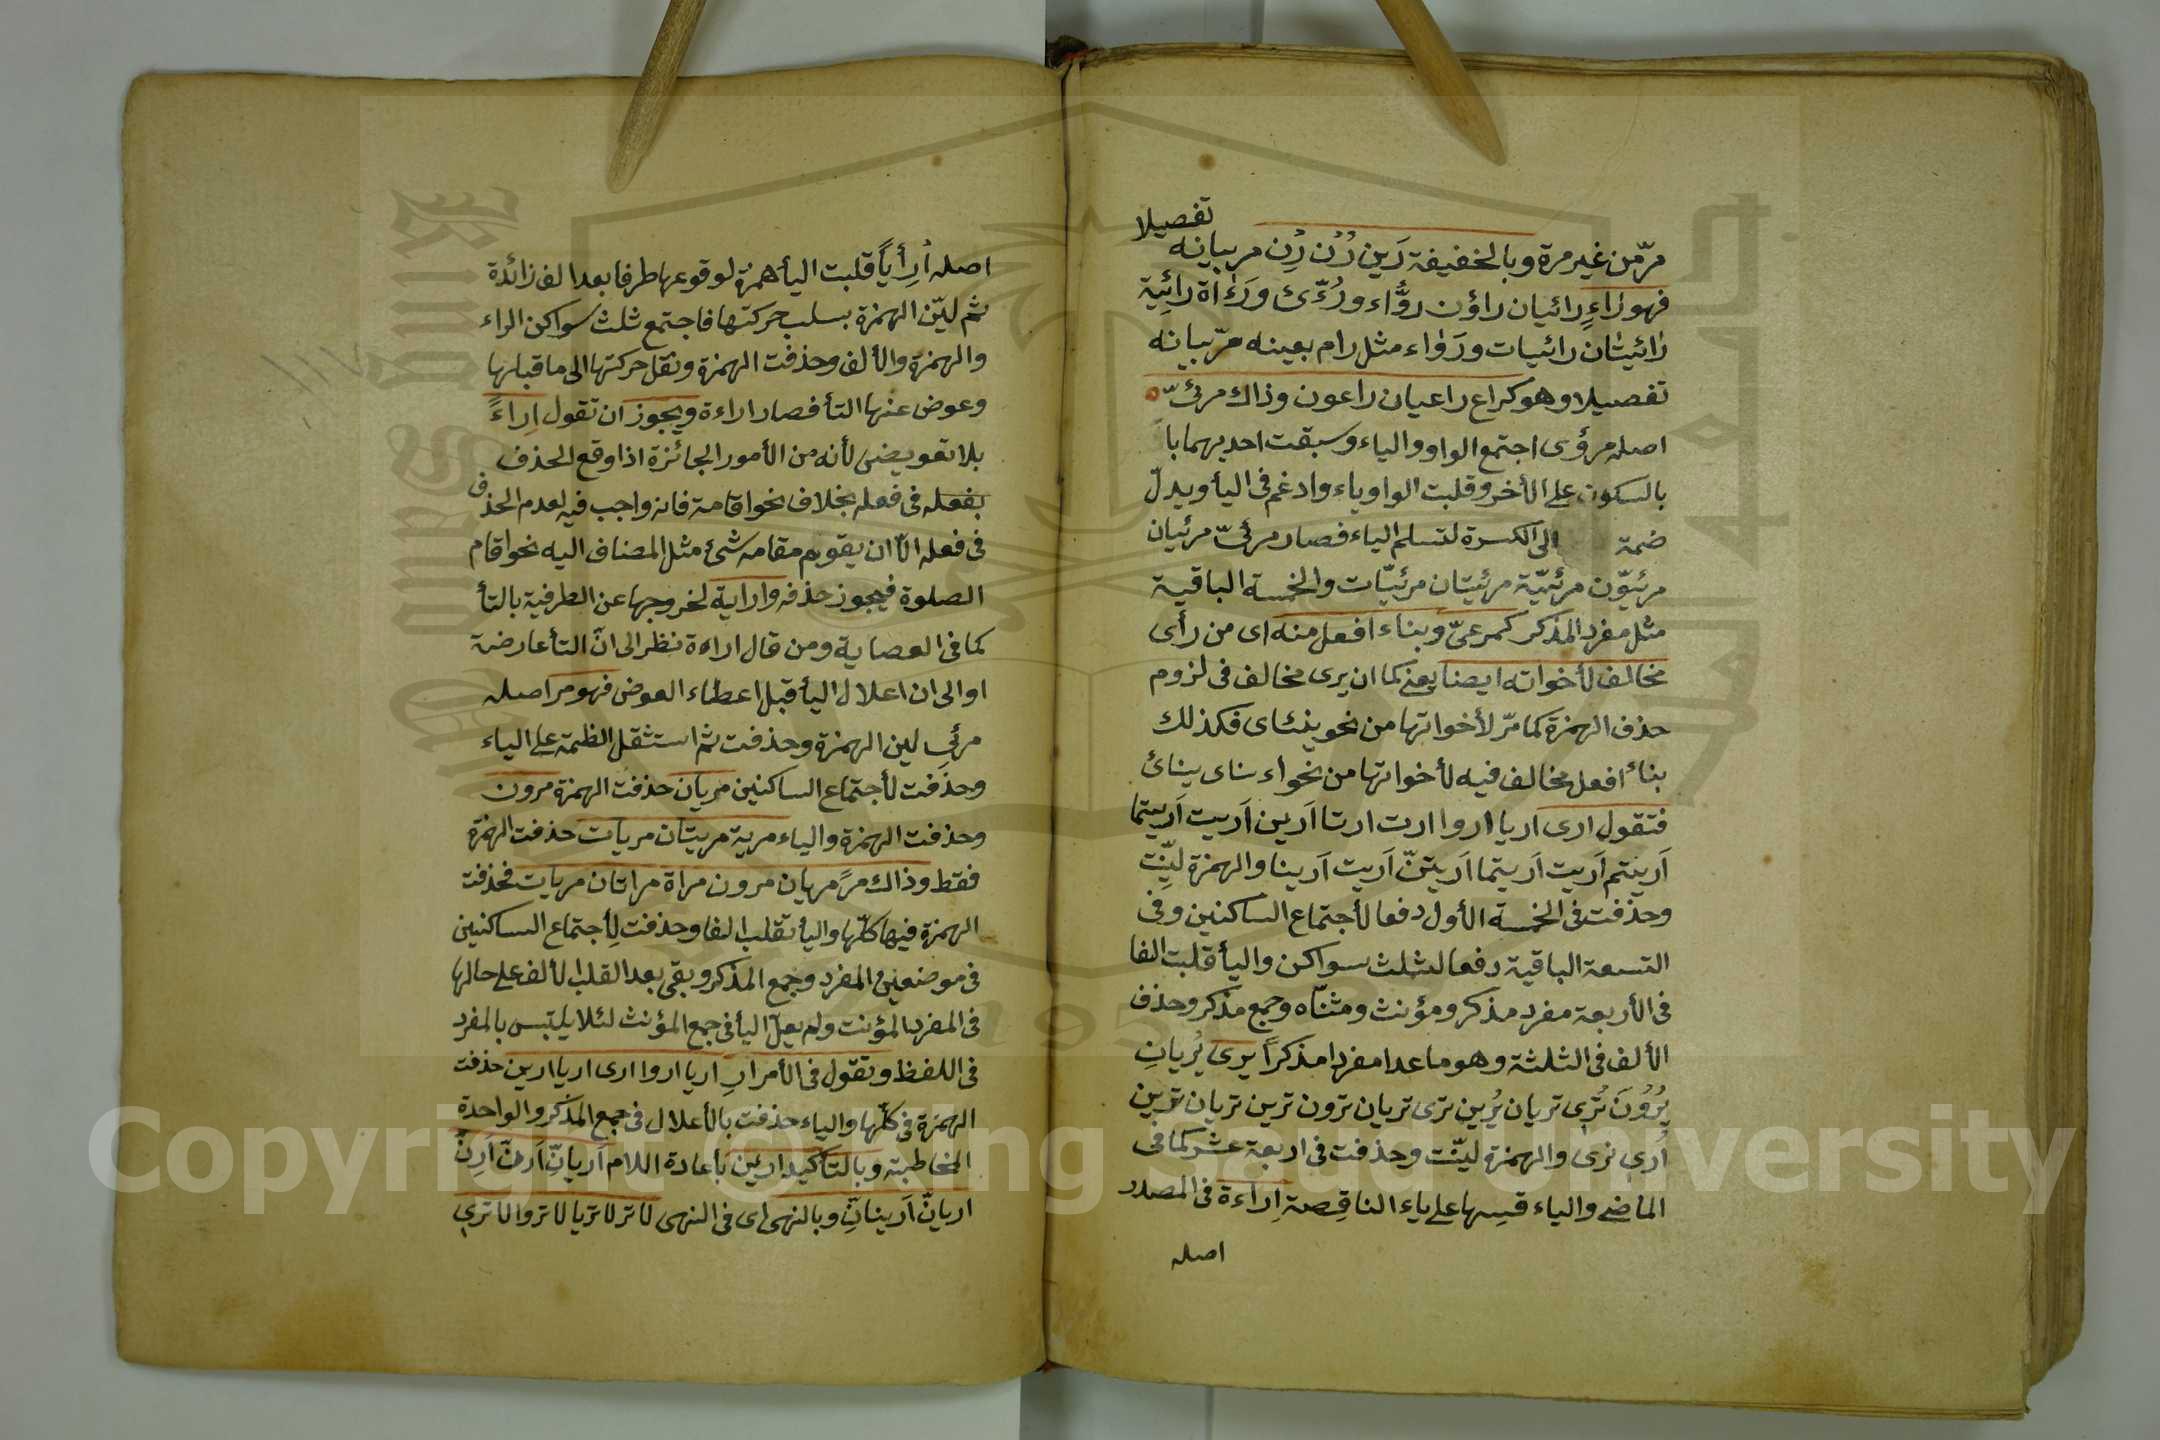 تفصيلا
مرّ من غير مرة وبالخفيفة رَين رُن رِن مر بيانه
فهو راءٍ رائيان راؤن رؤَّاء ورُءّى ورَءاة رائِية
رائيتان رائيات ورَوَاء مثل رام بعينه مرّ بيانه
تفصيلا وهو كراع راعيان راعون وذاك مرئىّ
اصله مرؤى اجتمع الواو والياء وسبقت احديهما با
بالسكون على الأخر وقلبت الواو ياء وادغم فى اليأ ويدلّ
ضمة الى الكسرة لتسلم الياء فصار مرئىّ مرئيان
مرئيّون مرئيّة مرئيتان مرئيّات والخمسة الباقية
مثل مفرد المذكر كمرعىّ وبناء افعل منه اى من رأى
مخالف لأخواته ايضا يعنى كما ان يرى مخالف فى لزوم
حذف الهمزة كما مرّ لأخواتها من نحو ينئاى فكذلك
بناء افعل مخالف فيه لأخواتها من نحو اءناى ينائ
فتقول ارى اريا اروا ارت ارتا اَرين اَريت اَريتما
اَريتم اَريت اَريتما اَريتنّ اَريت اَرينا والهمزة ليّنت
وحذفت فى الخمسة الأول دفعا لأجتماع الساكنين وفى
التسعة الباقية دفعا لثلث سواكن واليأ قلبت الفا
فى الأربعة مفرد مذكر ومؤنث ومثنّاه وجمع مذكر وحذف
الألف فى الثلثة وهو ما عدا مفردا مذكراً يرى يُريانِ
يُرُوُنَ تُرى تريان يُرين ترى تريان ترون ترين تريان ترين
اُرى نرى والهمزة ليّنت وحذفت فى اربعة عشر كما فى
الماضى والياء قسها على ياء الناقصة اِراءة فى المصدر
اصله
اصله اُرأياً قلبت اليأ همزة لوقوعها طرفا بعد الف زائدة
ثم ليّن الهمزة بسلب حركتها فاجتمع ثلث سواكن الراء
والهمزة والألف وحذفت الهمزة ونقل حركتها الى ما قبلها
وعوض عنها التأ فصار اراءة ويجوز ان تقول اِراءً
بلا تعويض لأنه من الأمور الجائزة اذا وقع الحذف
بفعله فى فعله بخلاف نحو اقامة فانه واجب فيه لعدم الحذف
فى فعله الّا ان يقوم مقامه شئ مثل المضاف اليه نحو اقام
الصلوة فيجوز حذفه واراية لخروجها عن الطرفية بالتأ
كما فى العصاية ومن قال اراءة نظر الى انّ التأ عارضة
او الى ان اعلال اليأ قبل اعطاء العوض فهو مر اصله
مرئي لين الهمزة وحذفت ثم استثقل الظمة على الياء
وحذفت لأجتماع الساكنين مريان حذفت الهمزة مرون
وحذفت الهمزة والياء مرية مريتان مريات حذفت الهمزة
فقط وذاك مرً مريان مرون مراة مراتان مريات فحذفت
الهمزة فيها كلّها واليأ تقلب الفا وحذفت لِأجتماع الساكنين
فى موضعين المفرد وجمع المذكر وبقى بعد القلب الألف على حالها
فى المفرد المؤنث ولم يعلّ اليأ فى جمع المؤنث لئلا يلتبس بالمفرد
فى اللفظ وتقول فى الأمر ارِ اريا اروا ارى اريا ارين حذفت
الهمزة فى كلّها والياء حذفت بالأعلال فى جمع المذكر والواحدة
المخاطبة وبالتأكيد ارين بأعادة اللام اَريانِّ اَرنّ اَرِنّ
اريانّ اَرينانِّ وبالنهى اى فى النهى لا تر لا تريا لا تروا لا ترى